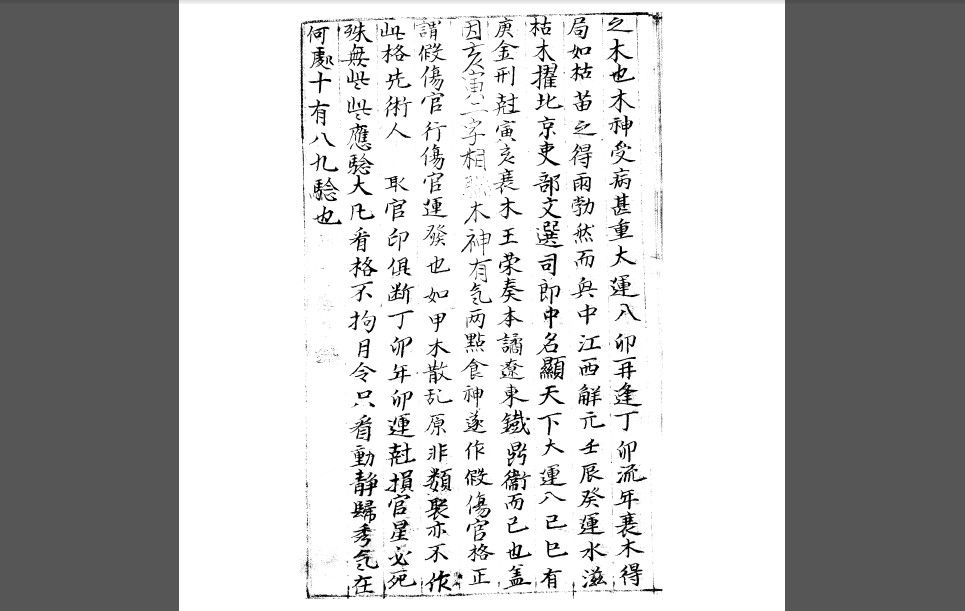 之木也木神受病甚重大運入卯再逢丁卯流年衰木得
局如枯苗之得雨勃然而兴中江西解元壬辰癸運水滋
枯木擢北京吏部文選司郎中名顯天下大運入己巳有
庚金刑尅寅亥衰木王荣奏本譎遼東鐵岺衞而已也盖
因亥寅二字相木神有気两點食神遂作假傷官格正
謂假傷官行傷官運發也如甲木散乱原非類聚亦不作
此格先術人 取官印俱断丁卯年卯運尅損官星必死
殊無些些應騐大凡看格不拘月令只看動静歸秀気在
何處十有八九騐也